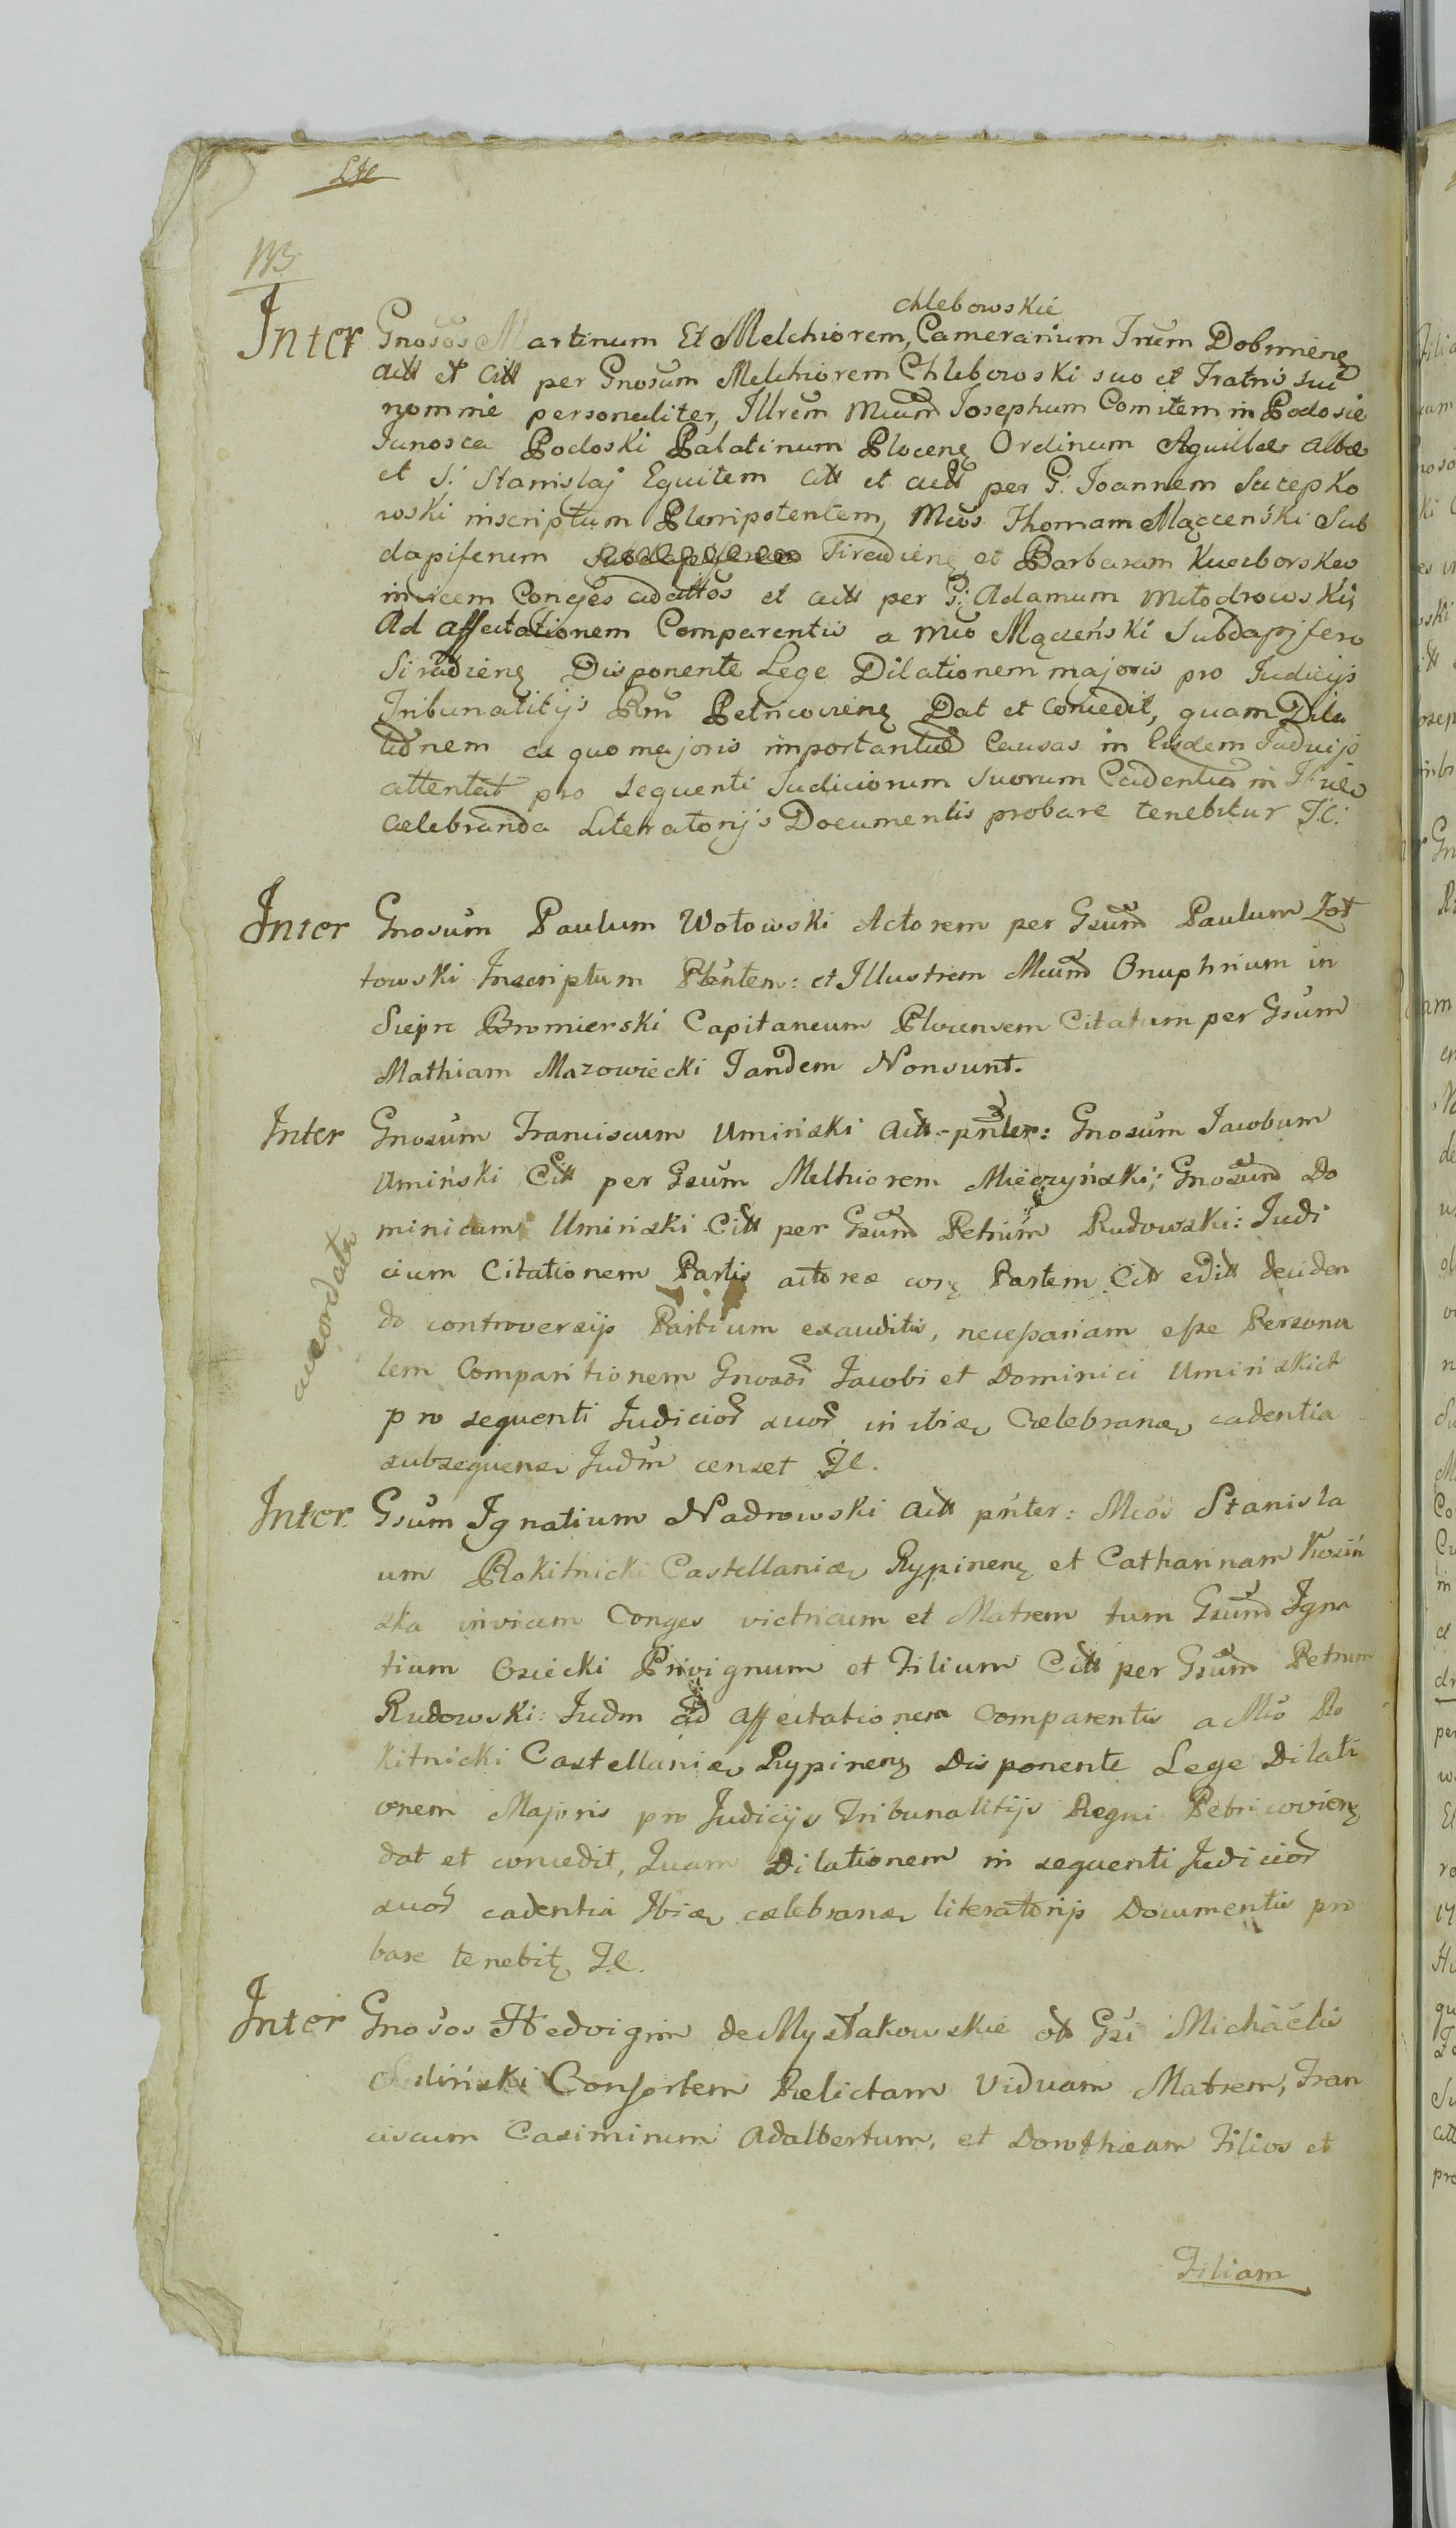 NB
chlebowskie
Inter Gnosos Martinum Et Melchiorem, Camerarium Trum Dobrinenę
actt et citt per Gnosum Melchiorem Chlebowski suo et Fratris sui
nomine personaliter, Illrem Mcum Josephum Comitem in Podosie
Junosca Podoski Palatinum Plocenę Ordinum Aquillae Albae
et S. Stanislaj Equitem citt et actt per G. Joannem Szczepko
wski inscriptum Plenipotentem, Mcos Thomam Mączenski Sub
dapiferum Siradienę et Barbaram Kuczborskw
invicem Conges adcttos et citt per G: Adamum Młodrowski;
Ad affectationem Comparentis a Mco Mączeński Subdapifero
Siradienę Disponente Lege Dilationem majoris pro Judicijs
Tribunalitijs Rni Petricovienę Dat et concedit, quam Dila
tionem ex quo majoris importantiae Causas in Eisdem Judicijs
attentat pro sequenti Judiciorum suorum Cadentia in
celebranda Literatorijs Documentis probare tenebitur J.C.
Inter Gnosum Paulum Wołowski Actorem per Gsum Paulum Zot
towski Inscriptum Plentem: et Illustrem Mcum Onuphrium in
Siepre Bromierski Capitaneum Plocensem Citatum per Gsum
Mathiam Mazowiecki Tandem Nonsunt.
Inter Gnosum Franciscum Umiński Actt pnter: Gnosum Jacobum
Umiński Citt per Gsum Melhiorem Mieczyński; Gnosum Do
minicum Umiński Citt per Gsum Petrum Rudowski: Judi
cium Citationem Partis actoreae corę Partem Citt editt deciden
do controversijs Partium exauditis, necessariam esse Persona
lem Comparitionem Gnosor Jacobi et Dominici Umińskich
pro sequenti Judicior suor in ibiae Caelebranae cadentia
subsequenae Judm censet J.C.
accordata
Inter Gsum Ignatium Nadrowski Actt pnter: Mcos Stanisla
um Rokitnicki Castellaniae Rypinenę et Catharinam Kosin
ska invicem Conges victricum et Matrem tum Gsum Igna
tium Osiecki Privignum et Filium Citt per Gsum Petrum
Rudowski: Judm ad affectationem Comparentis a Mco Ro
kitnicki Castellaniae Rypinenę Disponente Lege Dilati
onem Majoris pro Judicijs Tribunalitijs Regni Petricovienę
dat et concedit, Quam Dilationem in sequenti Judicior
suor cadentia Ibiae caelebranae literatorijs Documentis pro
bare tenebitę J.C.
Inter Gnosos Hedvigim de Mystakowskie Gsi Michaelis
Consortem Relictam Viduam Matrem, Fran
ciscum Casimirum Adalbertum, et Dorothaeam Filios et
Filiam